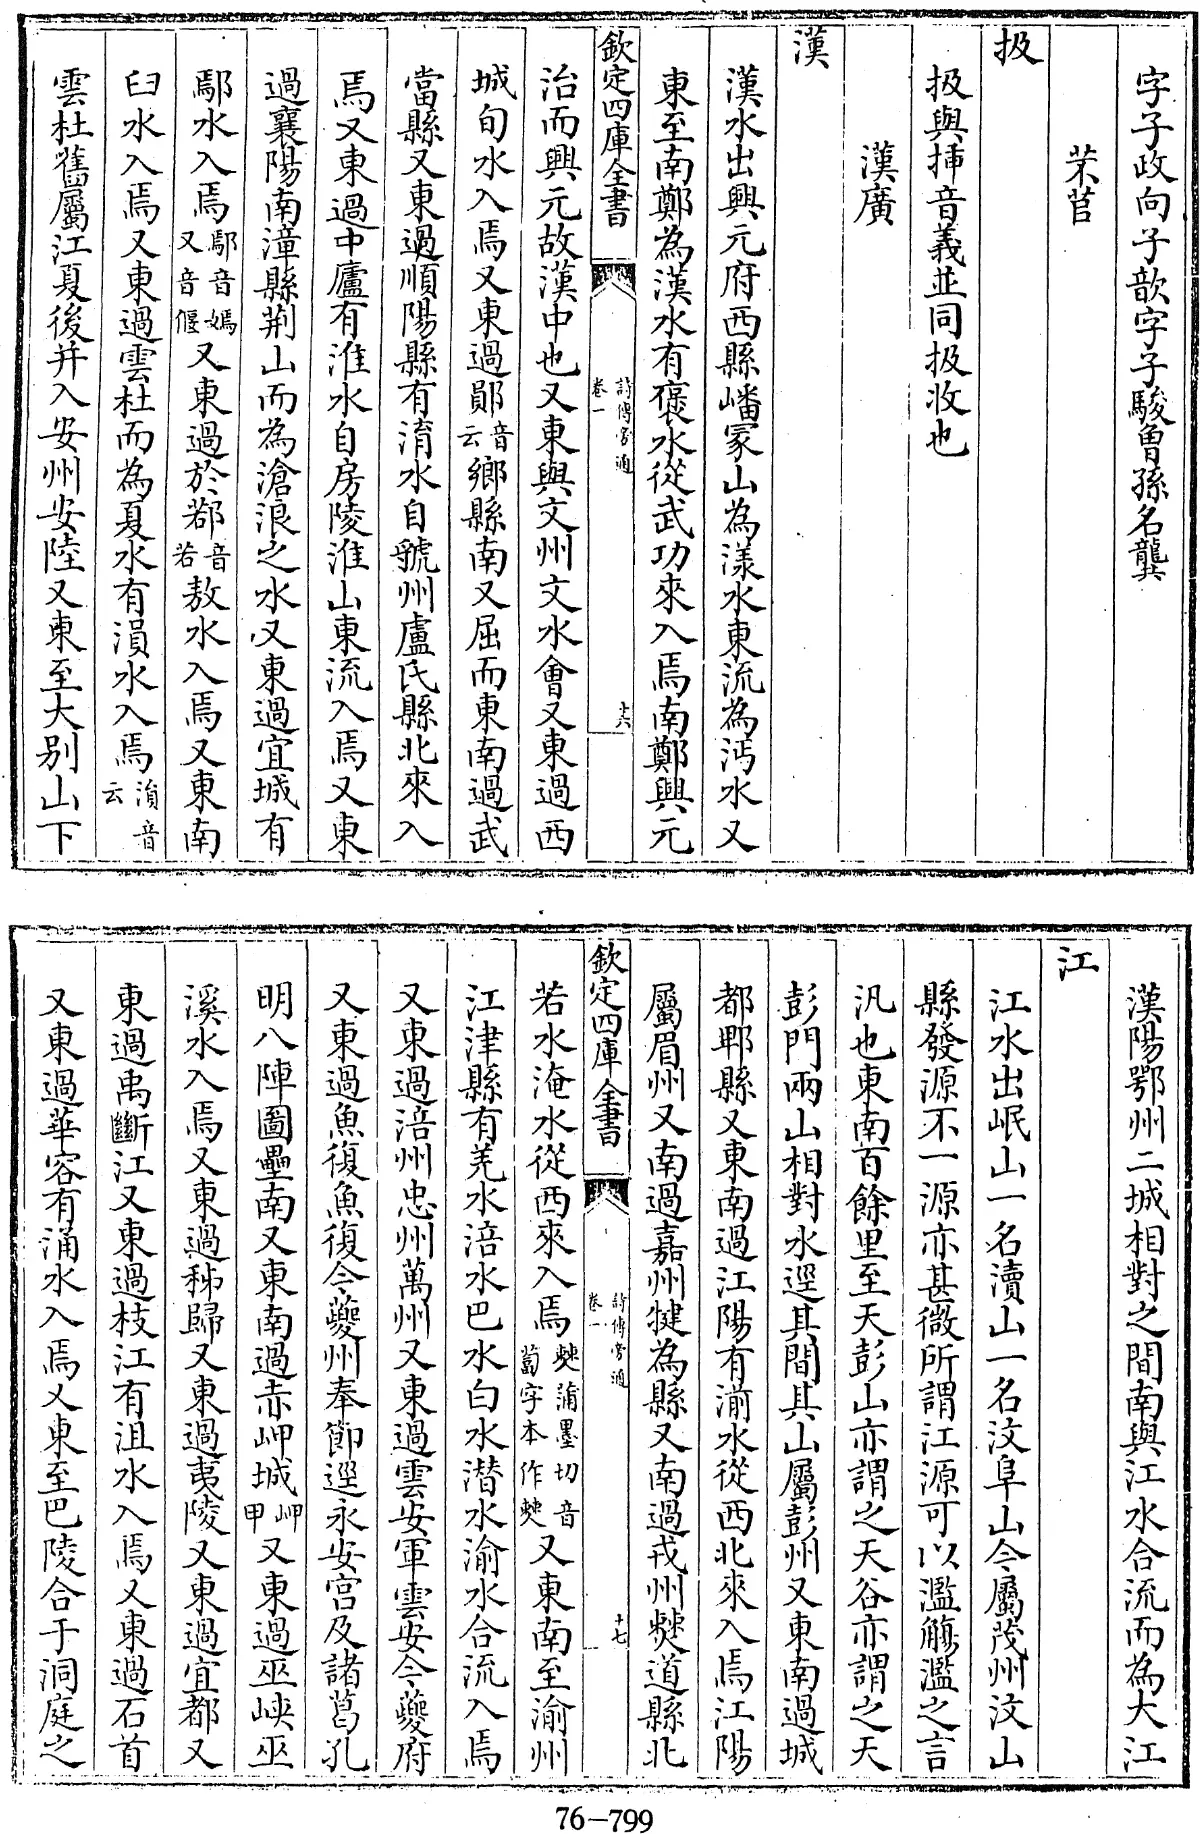 字子政向子歆字子駿曾孫名龔
芣苢
扱
扱與挿音義並同扱收也
漢廣
漢
漢水出興元府西縣嶓冡山為漾水東流為沔水又
東至南鄭為漢水有褒水從武功來入焉南鄭興元
欽定四庫全書
詩傳旁通
卷一
十六
治而興元故漢中也又東與文州文水會又東過西
城旬水入焉又東過鄖音云鄉縣南又屈而東南過武
當縣又東過順陽縣有淯水自虢州盧氏縣北來入
焉又東過中廬有淮水自房陵淮山東流入焉又東
過襄陽南漳縣荆山而為滄浪之水又東過宜城有
鄢水入焉鄢音嫣又音偃又東過於鄀音若敖水入焉又東南
臼水入焉又東過雲杜而為夏水有溳水入焉溳音云
雲杜舊屬江夏後并入安州安陸又東至大別山下
漢陽鄂州二城相對之間南與江水合流而為大江
江
江水出岷山一名瀆山一名汶阜山今屬茂州汶山
縣發源不一源亦甚微所謂江源可以濫觴濫之言
汎也東南百餘里至天彭山亦謂之天谷亦謂之天
彭門兩山相對水逕其間其山屬彭州又東南過城
都郫縣又東南過江陽有湔水從西北來入焉江陽
屬眉州又南過嘉州犍為縣又南過戎州僰道縣北
欽定四庫全書
詩傳旁通
卷一
十七
若水淹水從西來入焉僰蒲墨切音蔔字本作僰又東南至渝州
江津縣有羌水涪水巴水白水潛水渝水合流入焉
又東過涪州忠州萬州又東過雲安軍雲安今夔府
又東過魚復魚復今夔州奉節逕永安宫及諸葛孔
明八陣圖壘南又東南過赤岬城岬甲又東過巫峽巫
溪水入焉又東過秭歸又東過夷陵又東過宜都又
東過禹斷江又東過枝江有沮水入焉又東過石首
又東過華容有涌水入焉又東至巴陵合于洞庭之
76-799